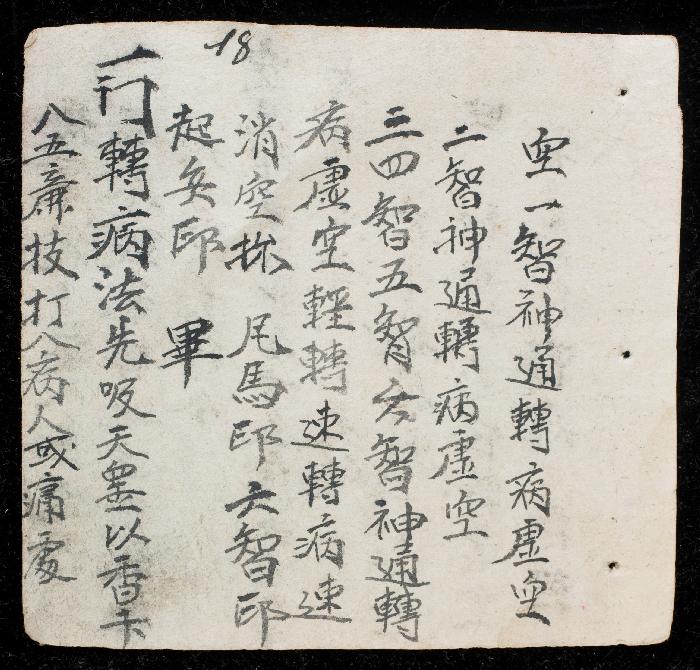 18
空一智神通轉病虛空
二智神通轉病虛空
三四智五智六智神通轉
病虛空輕轉速轉病速
消空 尾馬印六智印
起兵印 畢
一門轉病法先吸天罡以香
八五 技打八病人或痛處